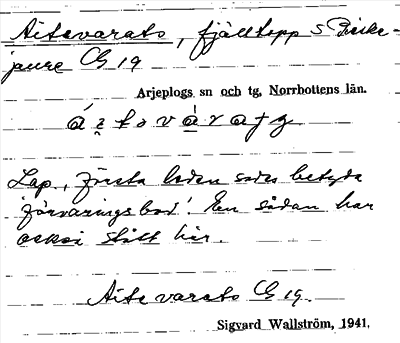 Aitevarats, fjälltopp S Piske-
jaure CG 19
Arjeplogs sn och tg, Norrbottens län.
Lap., första leden sades betyda
'förvaringsbod'. En sådan har
också stått här.
Aitevarats CG 19.
Sigvard Wallström, 1941.